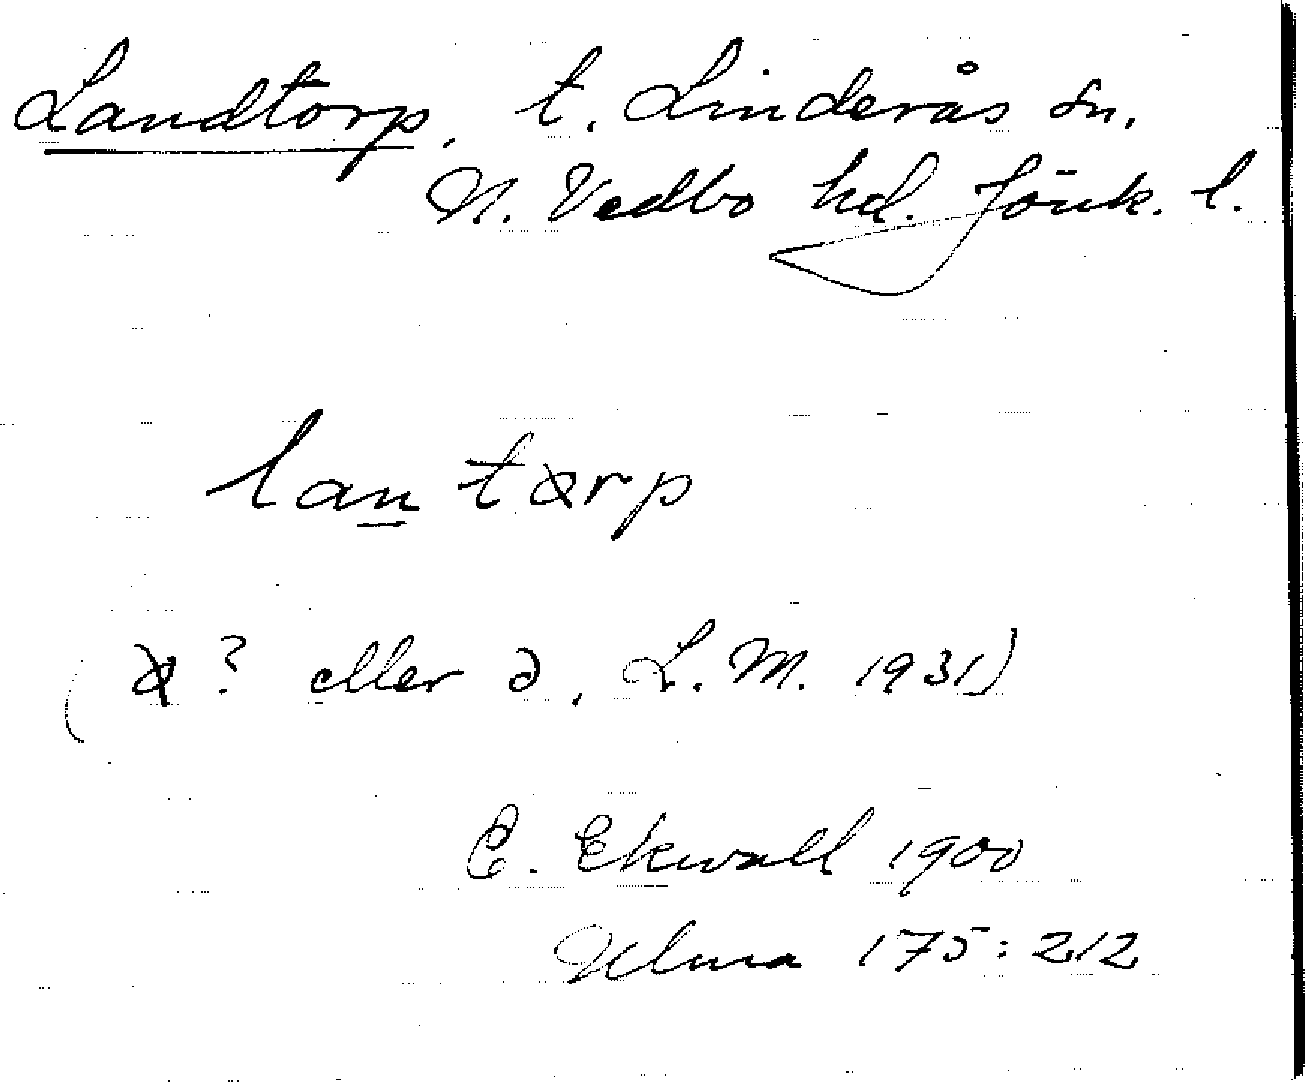 Landtorp, t. Linderås sn.
N. Vedbo hd. Jönk. l.
lan tɑrp
(ɑ? eller ə. L. M. 1931)
E. Ekwall 1900
Ulma 175:212